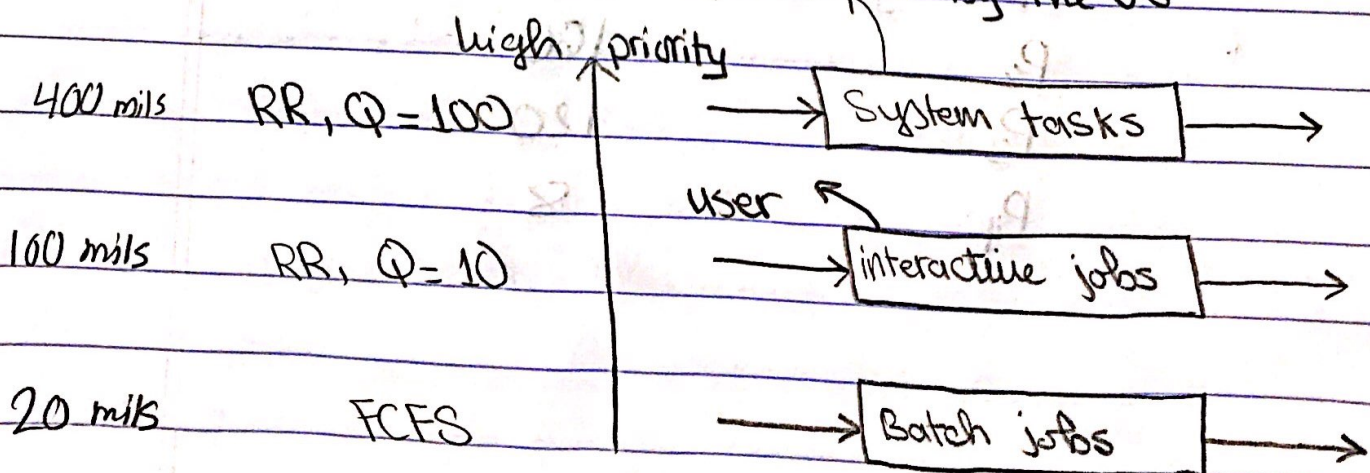 the OS
high priority
400 mils RR, Q=100 System tasks
user
100 mils RR, Q=10 interactive jobs
20 mils FCFS Batch jobs